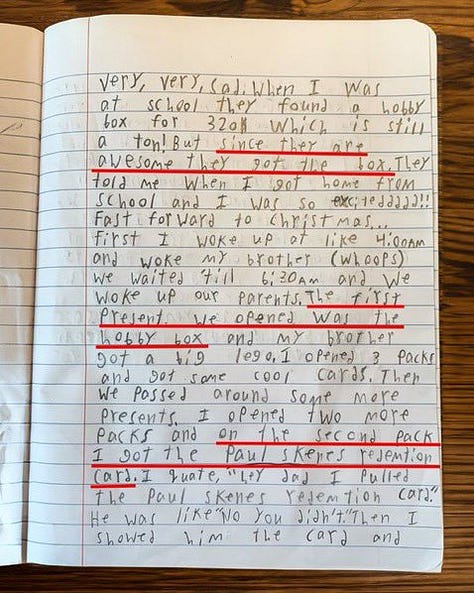 very, very, sad. When I was
at school they found a hobby
box for 320$ which is still
a ton! But since they are
awesome they got the box. They
told me when I got home from
school and I was so exciteddddd!!
Fast forward to christmas...
First I woke up at like 4:00AM
and woke my brother (whoops)
we waited till 6:30AM and we
woke up our parents. The first
Present we opened was the
hobby box and my brother
got a big lego. I opened 3 packs
and got some cool cards. Then
we passed around some more
Presents. I opened two more
packs and on the second pack
I got the Paul skenes redemtion
card. I quate, "hey dad I pulled
the Paul skenes redemtion card."
He was like "No you didn't." Then I
showed him the card and